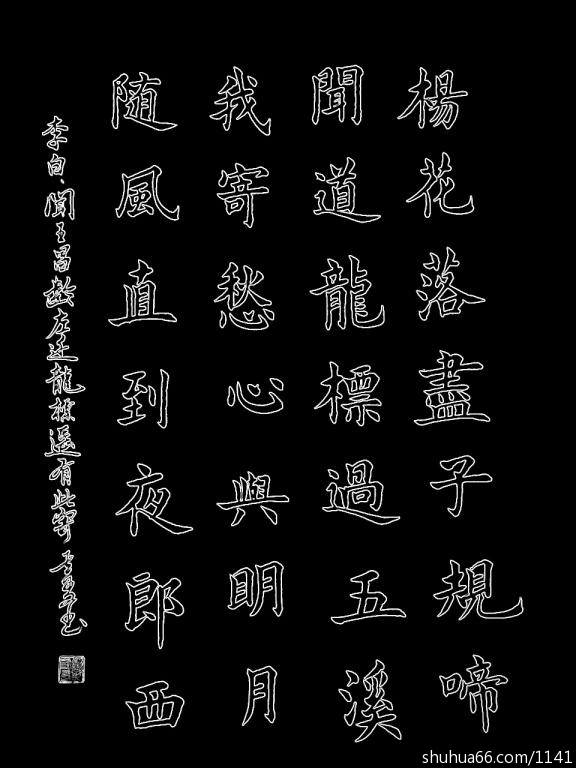 楊花落盡子規啼
聞道龍標過五溪
我寄愁心與明月
随風直到夜郎西
李白、聞王昌齡左迁龍標遥有此寄
shuhua66.com/1141